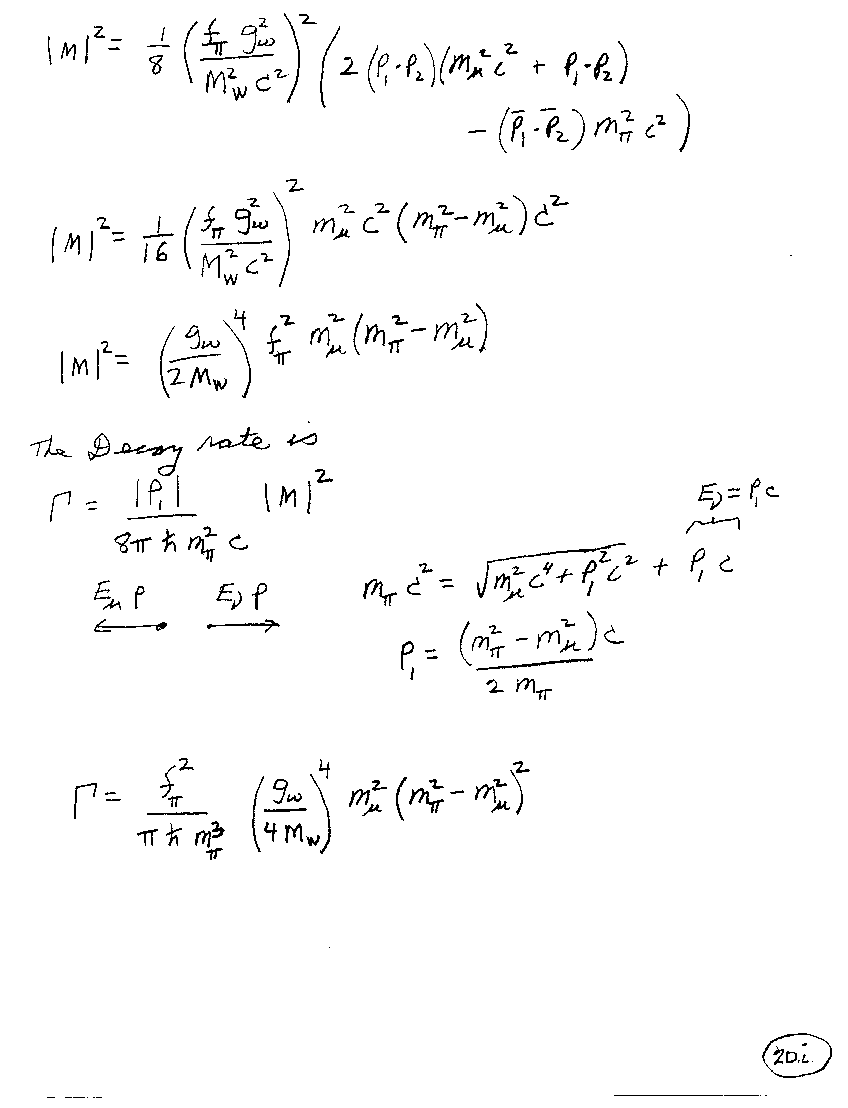 |M|² = 1/8 (f_π g_w² / M_W² c²)² (2 (P₁·P₂)(m_μ² c² + P₁·P₂)
− (P̄₁·P̄₂) m_π² c²)
|M|² = 1/16 (f_π g_w² / M_W² c²)² m_μ² c² (m_π² − m_μ²) c²
|M|² = (g_w / 2 M_W)⁴ f_π² m_μ² (m_π² − m_μ²)
The Decay rate is
Γ = |P₁| / 8π ħ m_π² c |M|²
E_ν = P₁ c
m_π c² = √(m_μ² c⁴ + P₁² c²) + P₁ c
E_μ P E_ν P
P₁ = (m_π² − m_μ²) c / 2 m_π
Γ = f_π² / π ħ m_π³ (g_w / 4 M_W)⁴ m_μ² (m_π² − m_μ²)²
20.i